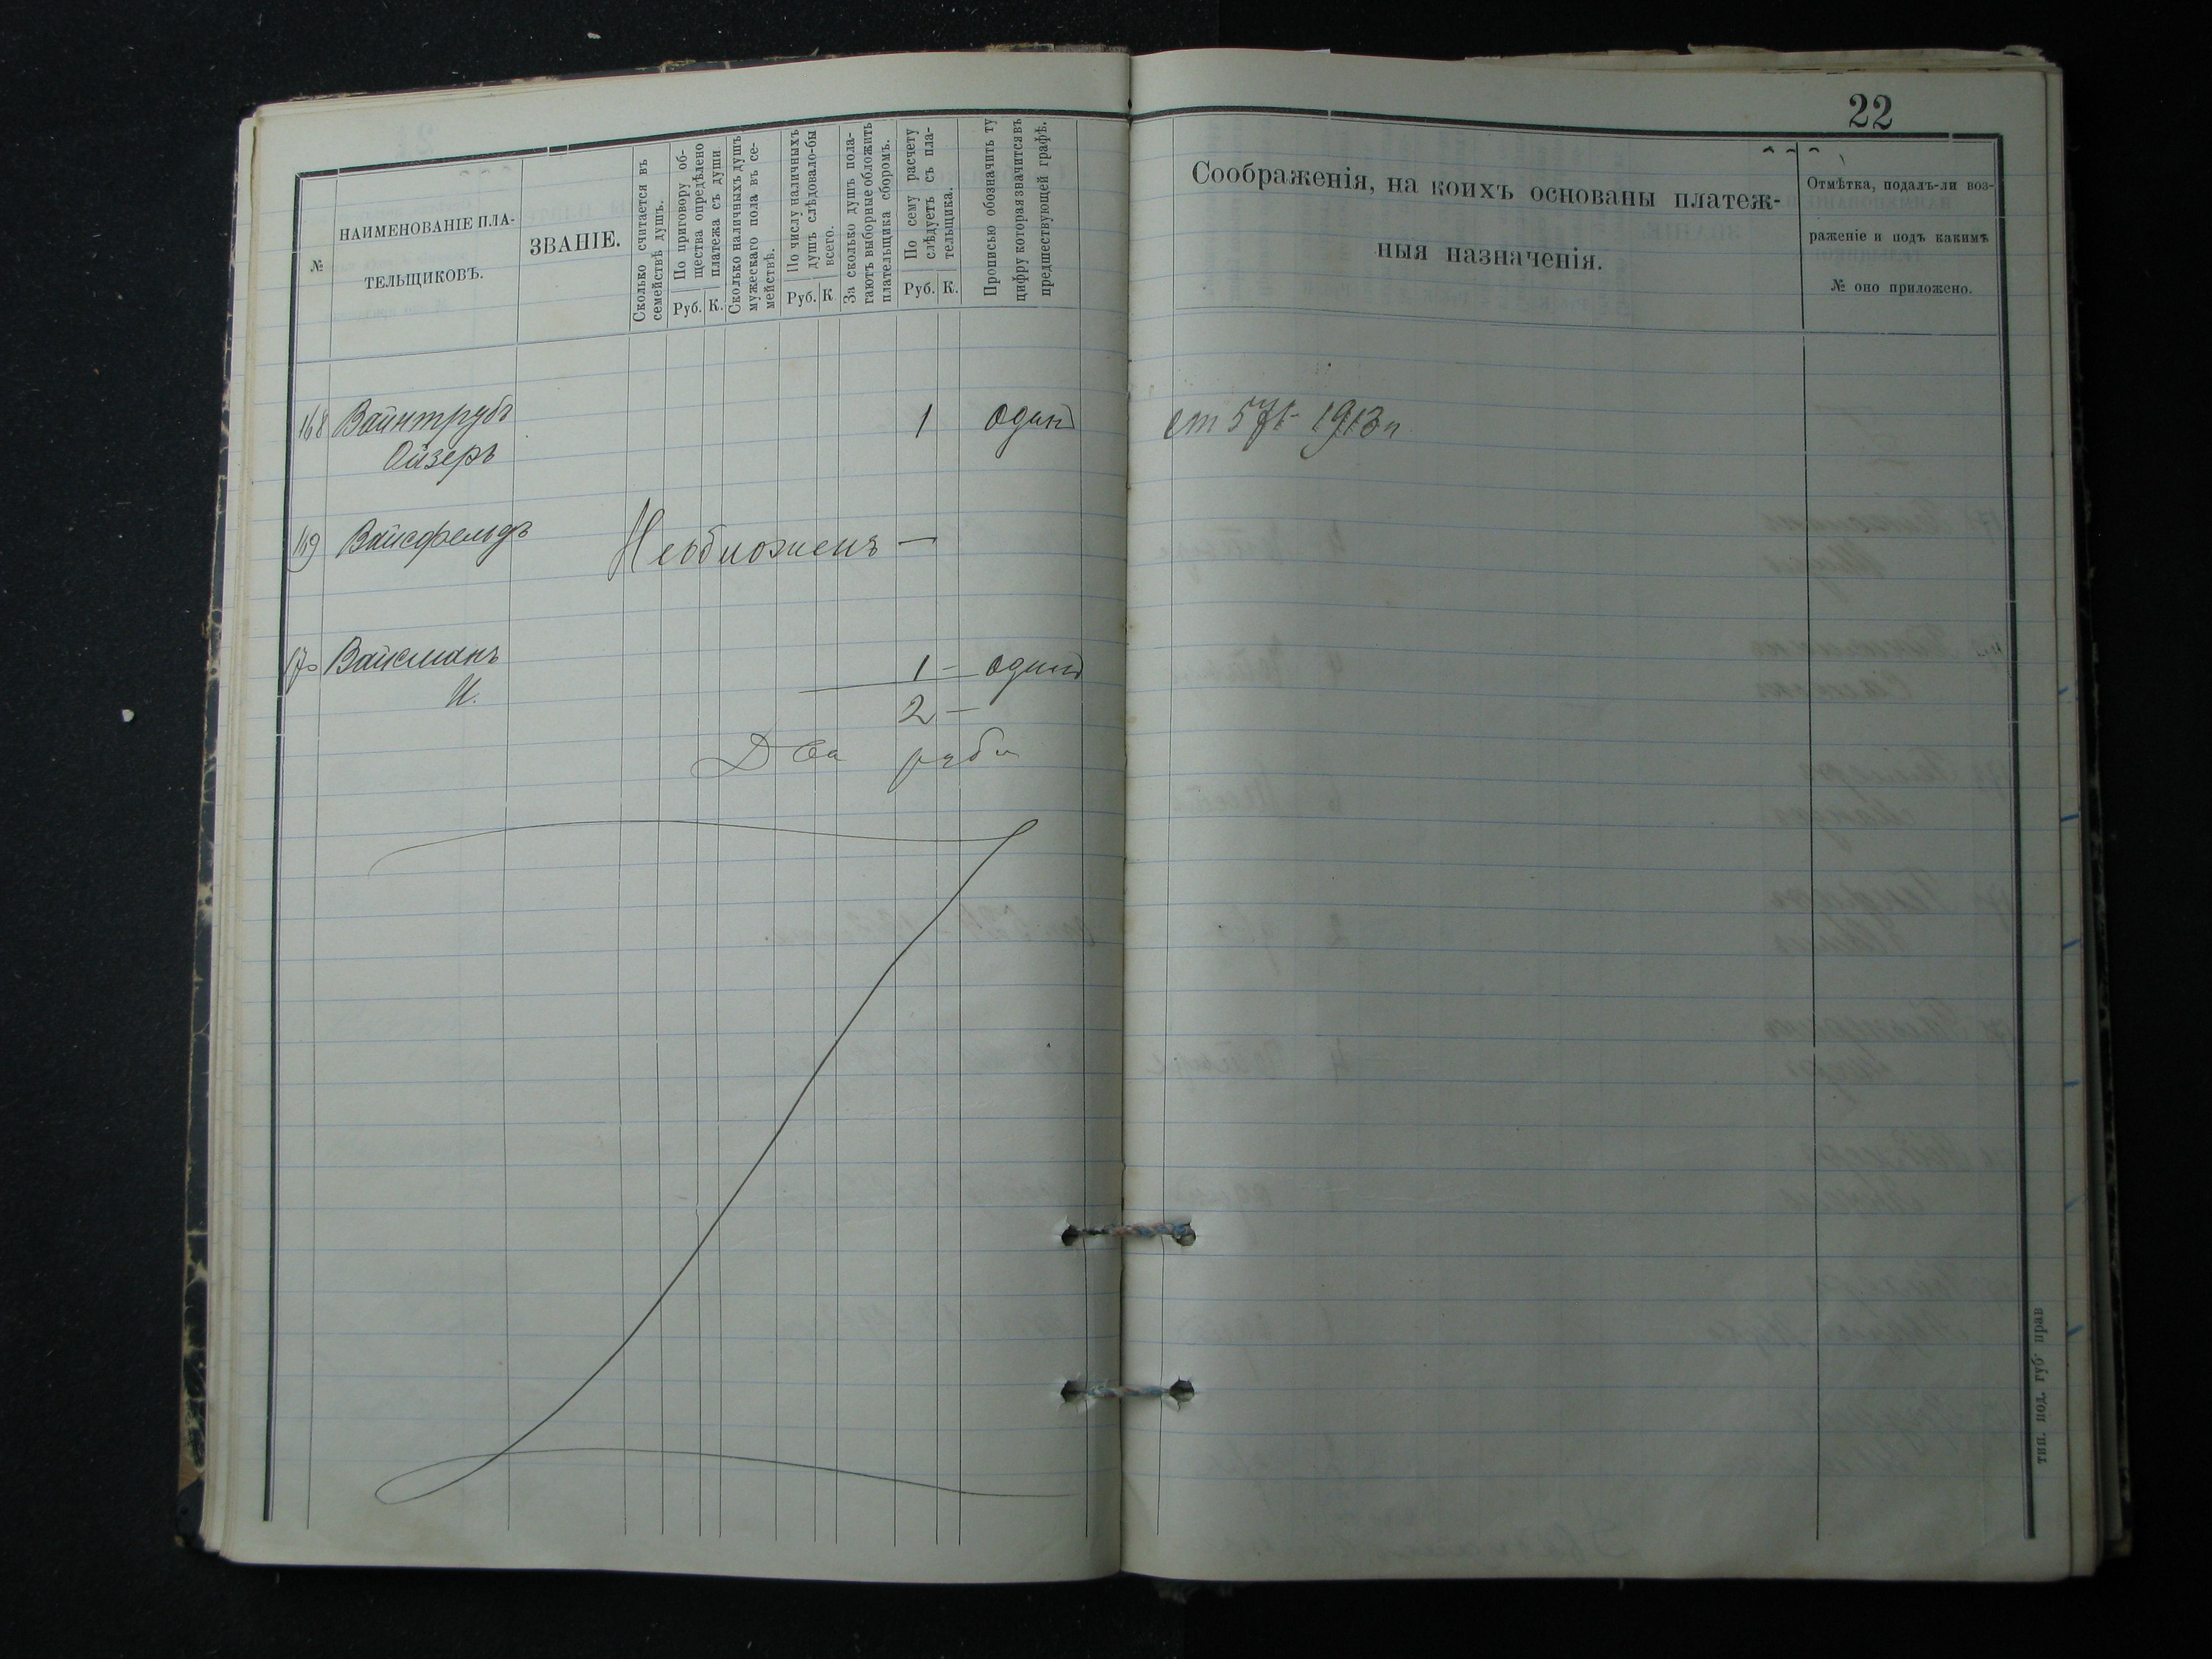 22
№
НАИМЕНОВАНІЕ ПЛА-
ТЕЛЬЩИКОВЪ.
ЗВАНІЕ.
Сколько считается въ
семействѣ душъ.
По приговору об-
щества опредѣлено
платежа съ души
Руб. К.
Сколько наличныхъ душъ
мужескаго пола въ се-
мействѣ.
По числу наличныхъ
душъ слѣдовало-бы
всего.
Руб. К
За сколько душъ пола-
гаютъ выборные обложить
плательщика сборомъ.
По сему расчету
слѣдуетъ съ пла-
тельщика.
Руб. К.
Прописью обозначить ту
цифру которая значится въ
предшествующей графѣ.
Соображенія, на коихъ основаны платеж-
ныя назначенія.
Отмѣтка, подалъ-ли воз-
раженіе и подъ какимъ
№ оно приложено.
168 Вайнтрубъ 1 один
Ойзеръ
169 Вайсфельдъ Необложенъ —
170 Вайсманъ 1 — один
И.
2 —
Два рубл
тип. под. губ. прав